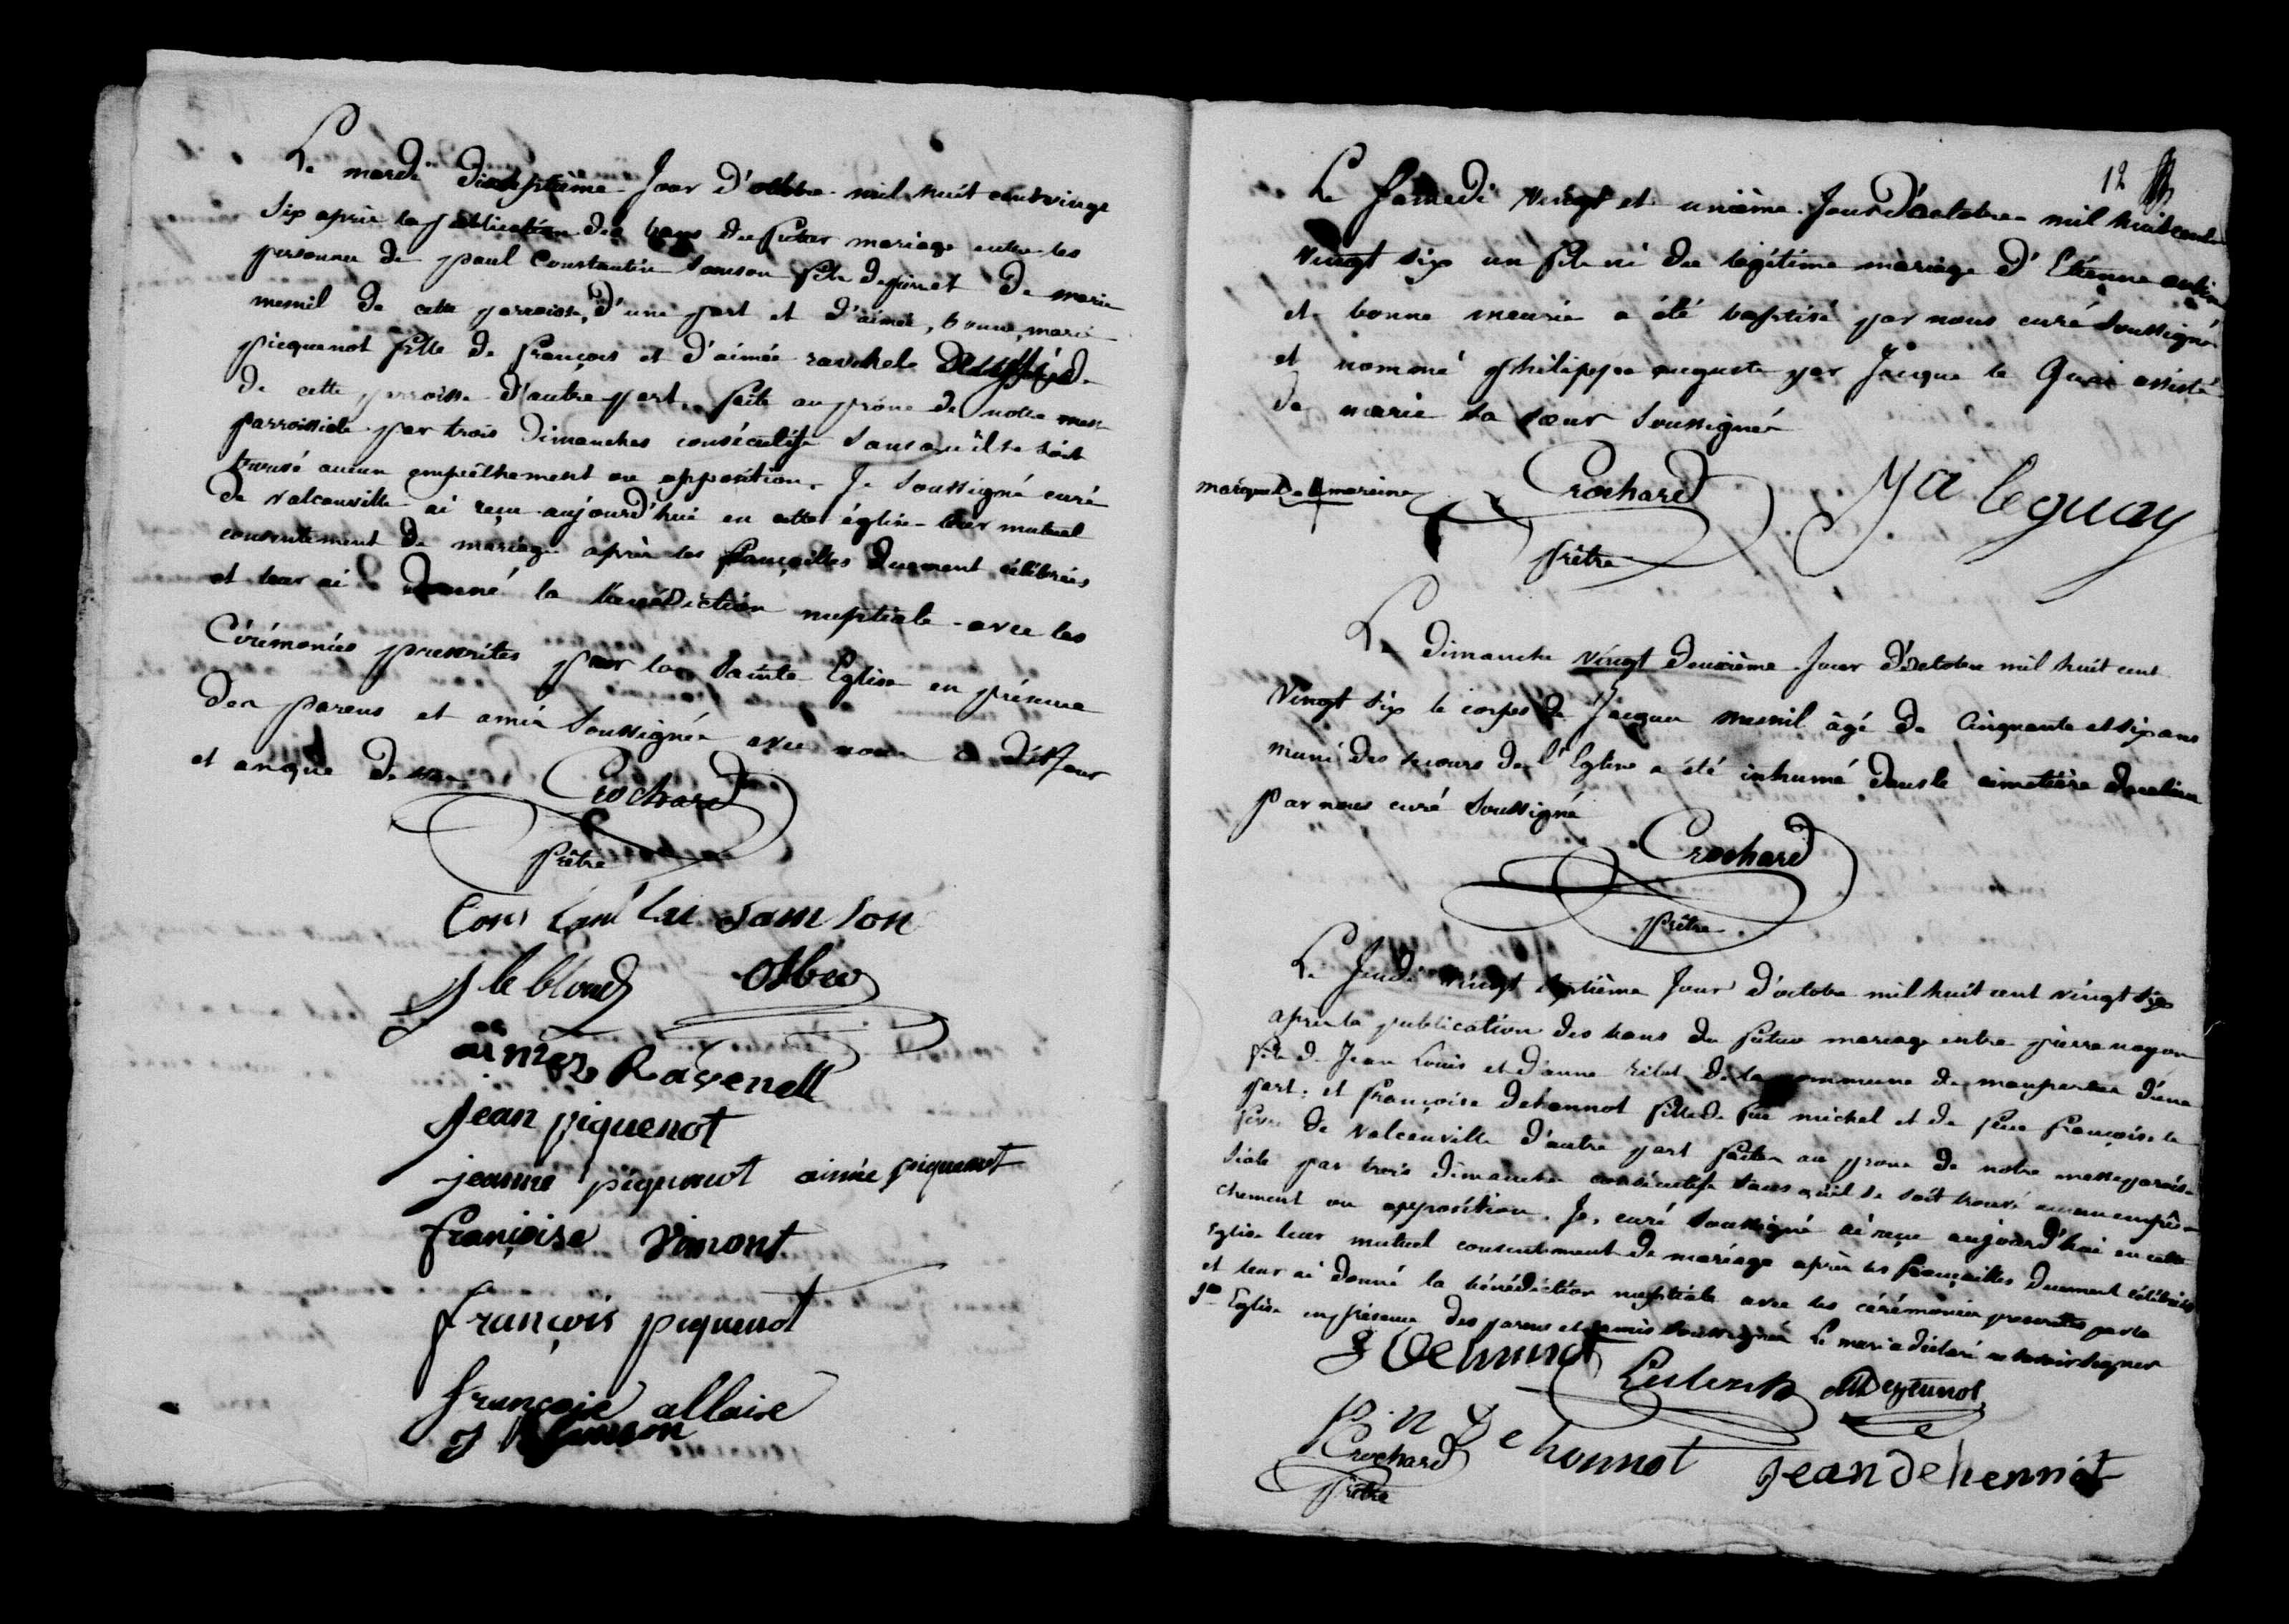 Le mardi dixseptième Jour d'octobre mil huit cent vingt
Six après la publication des bans du futur mariage entre les
personnes de paul Constantin Samson fils de et de marie
mesnil de cette parroisse, d'une part et d'aimée, bonne, marie
picquenot fille de françois et d'aimée
de cette parroisse d'autre part, faite au prône de notre messe
parroissiale par trois Dimanches consécutifs sans qu'il se soit
trouvé aucun empêchement ou opposition. Je Soussigné curé
de valcanville ai reçu aujourd'hui en cette église leur mutuel
consentement de mariage après les fiançailles duement célébrées
et leur ai donné la bénédiction nuptiale avec les
Cérémonies prescrites par la Sainte Eglise en présence
des parens et amis Soussignés avec nous dits Jour
et an que dessus
Crochard
prêtre
Constantin Samson
J le blond
aimée Ravenell
jean piquenot
jeanne piquenot aimée piquenot
françoise Vimont
françois piquenot
françoise allaire
12
Le Samedi vingt et unième Jour d'octobre mil huit cent
vingt six un fils né du légitime mariage d'Etienne
et bonne a été baptisé par nous curé Soussigné
et nommé philippe auguste par Jacque le Quai assisté
de marie sa sœur Soussignés
marque de la mareine Crochard le guay
prêtre
Le dimanche vingt deuxième Jour d'octobre mil huit cent
vingt Six le corps de Jacques mesnil âgé de Cinquante et six ans
muni des secours de l'Eglise a été inhumé dans le cimetière de ce lieu
par nous curé Soussigné
Crochard
prêtre
Le Jeudi vingt Septième Jour d'octobre mil huit cent vingt Six
après la publication des bans du futur mariage entre pierre noyon
fils de Jean Louis et d'anne de la commune de maupertus d'une
part; et françoise dehennot fille de feu michel et de feue françoise le
de valcanville d'autre part faites au prone de notre messe parois-
siale par trois dimanches consécutifs sans qu'il se soit trouvé aucun empê-
chement ou opposition. Je, curé Soussigné ai reçu aujourd'hui en cette
Eglise leur mutuel consentement de mariage après les fiançailles duement célébrées
et leur ai donné la bénédiction nuptiale avec les cérémonies prescrites par la
Ste Eglise en présence des parens et amis Soussignés Le mari a déclaré ne savoir signer
Dehennot
Dehennot Jean Dehennot
Crochard
prêtre